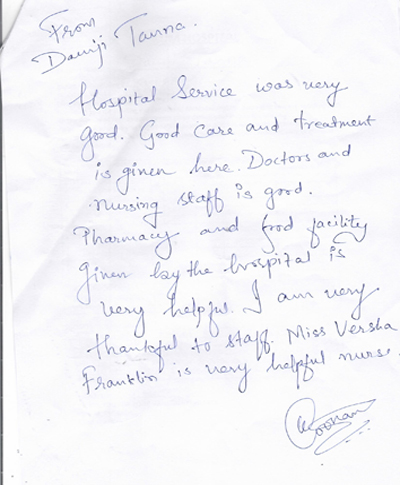 From
Damji Tanna.
Hospital Service was very
good. Good care and treatment
is given here. Doctors and
nursing staff is good.
Pharmacy and food facility
given by the hospital is
very helpful. I am very
thankful to staff. Miss Versha
Franklin is very helpful nurse.